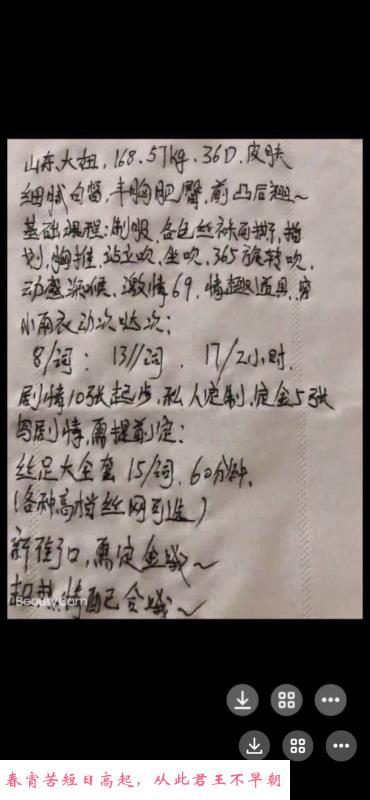 山东大妞，168.57kg.36D.皮肤
细腻白皙，丰胸肥臀，前凸后翘～
基础课程：制服，各色丝袜可撕，指
划，胸推，站立吹，坐吹，365旋转吹，
动感深喉，激情69，情趣道具，穿
小雨衣动次哒次；
8/词：13//词．17/2小时．
剧情10张起步，私人定制，定金5张
剧情，需提前定：
丝足大全套 15/词．60分钟．
（各种高档丝网引进）
新街口，需定金哦～
BeautyCam
春宵苦短日高起，从此君王不早朝